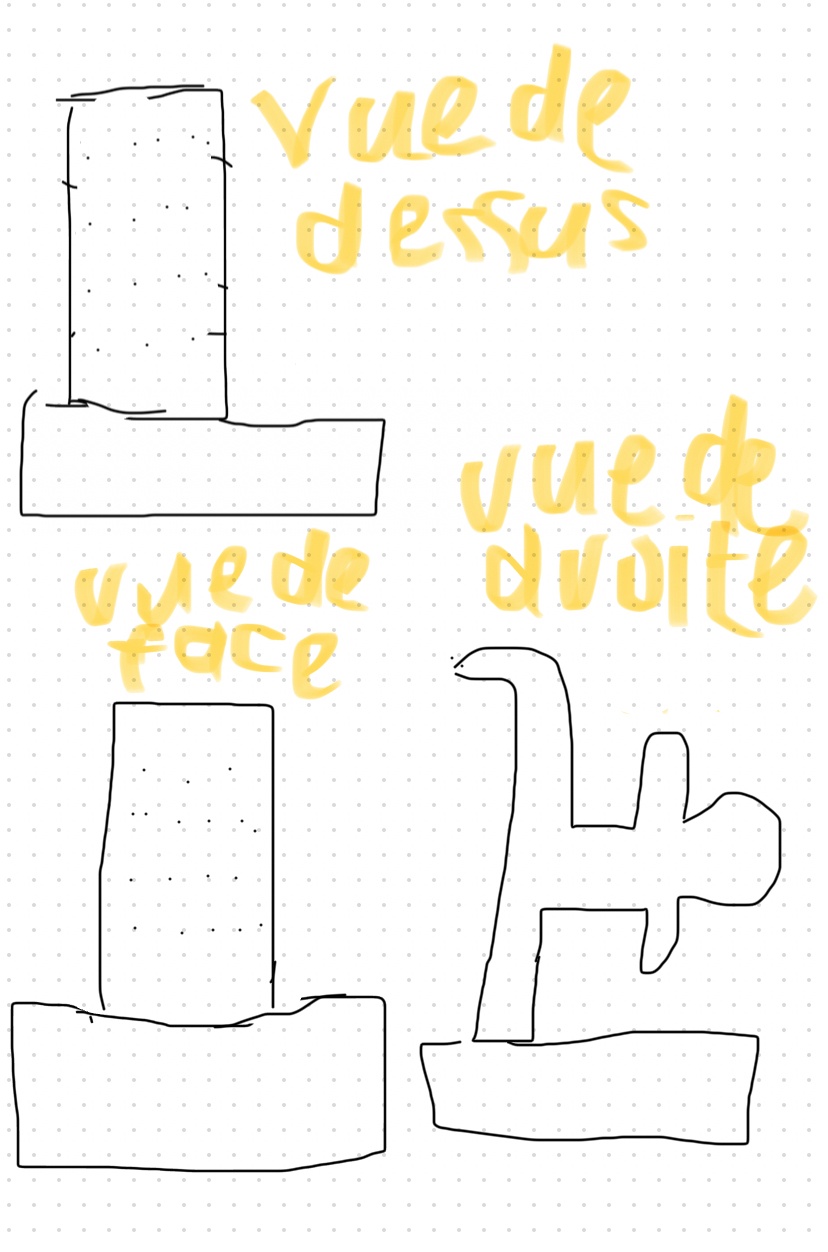 vue de
dessus
vue de
droite
vue de
face